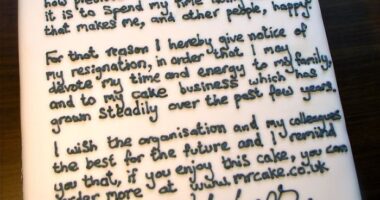 it is to spend my time
that makes me, and other people, happy.
For that reason I hereby give notice of
my resignation, in order that I may
devote my time and energy to my family,
and to my cake business which has
grown steadily over the past few years.
I wish the organisation and my colleagues
the best for the future and I remind
you that, if you enjoy this cake, you can
order more at www.mrcake.co.uk